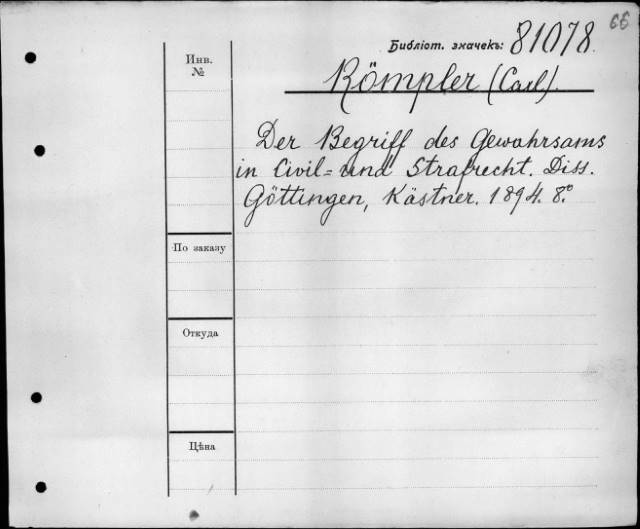 66
Библіот. значекъ: 81078.
Инв.
№
Römpler (Carl).
Der Begriff des Gewahrsams
in Civil= und Strafrecht. Diss.
Göttingen, Kästner. 1894. 8°.
По заказу
Откуда
Цѣна